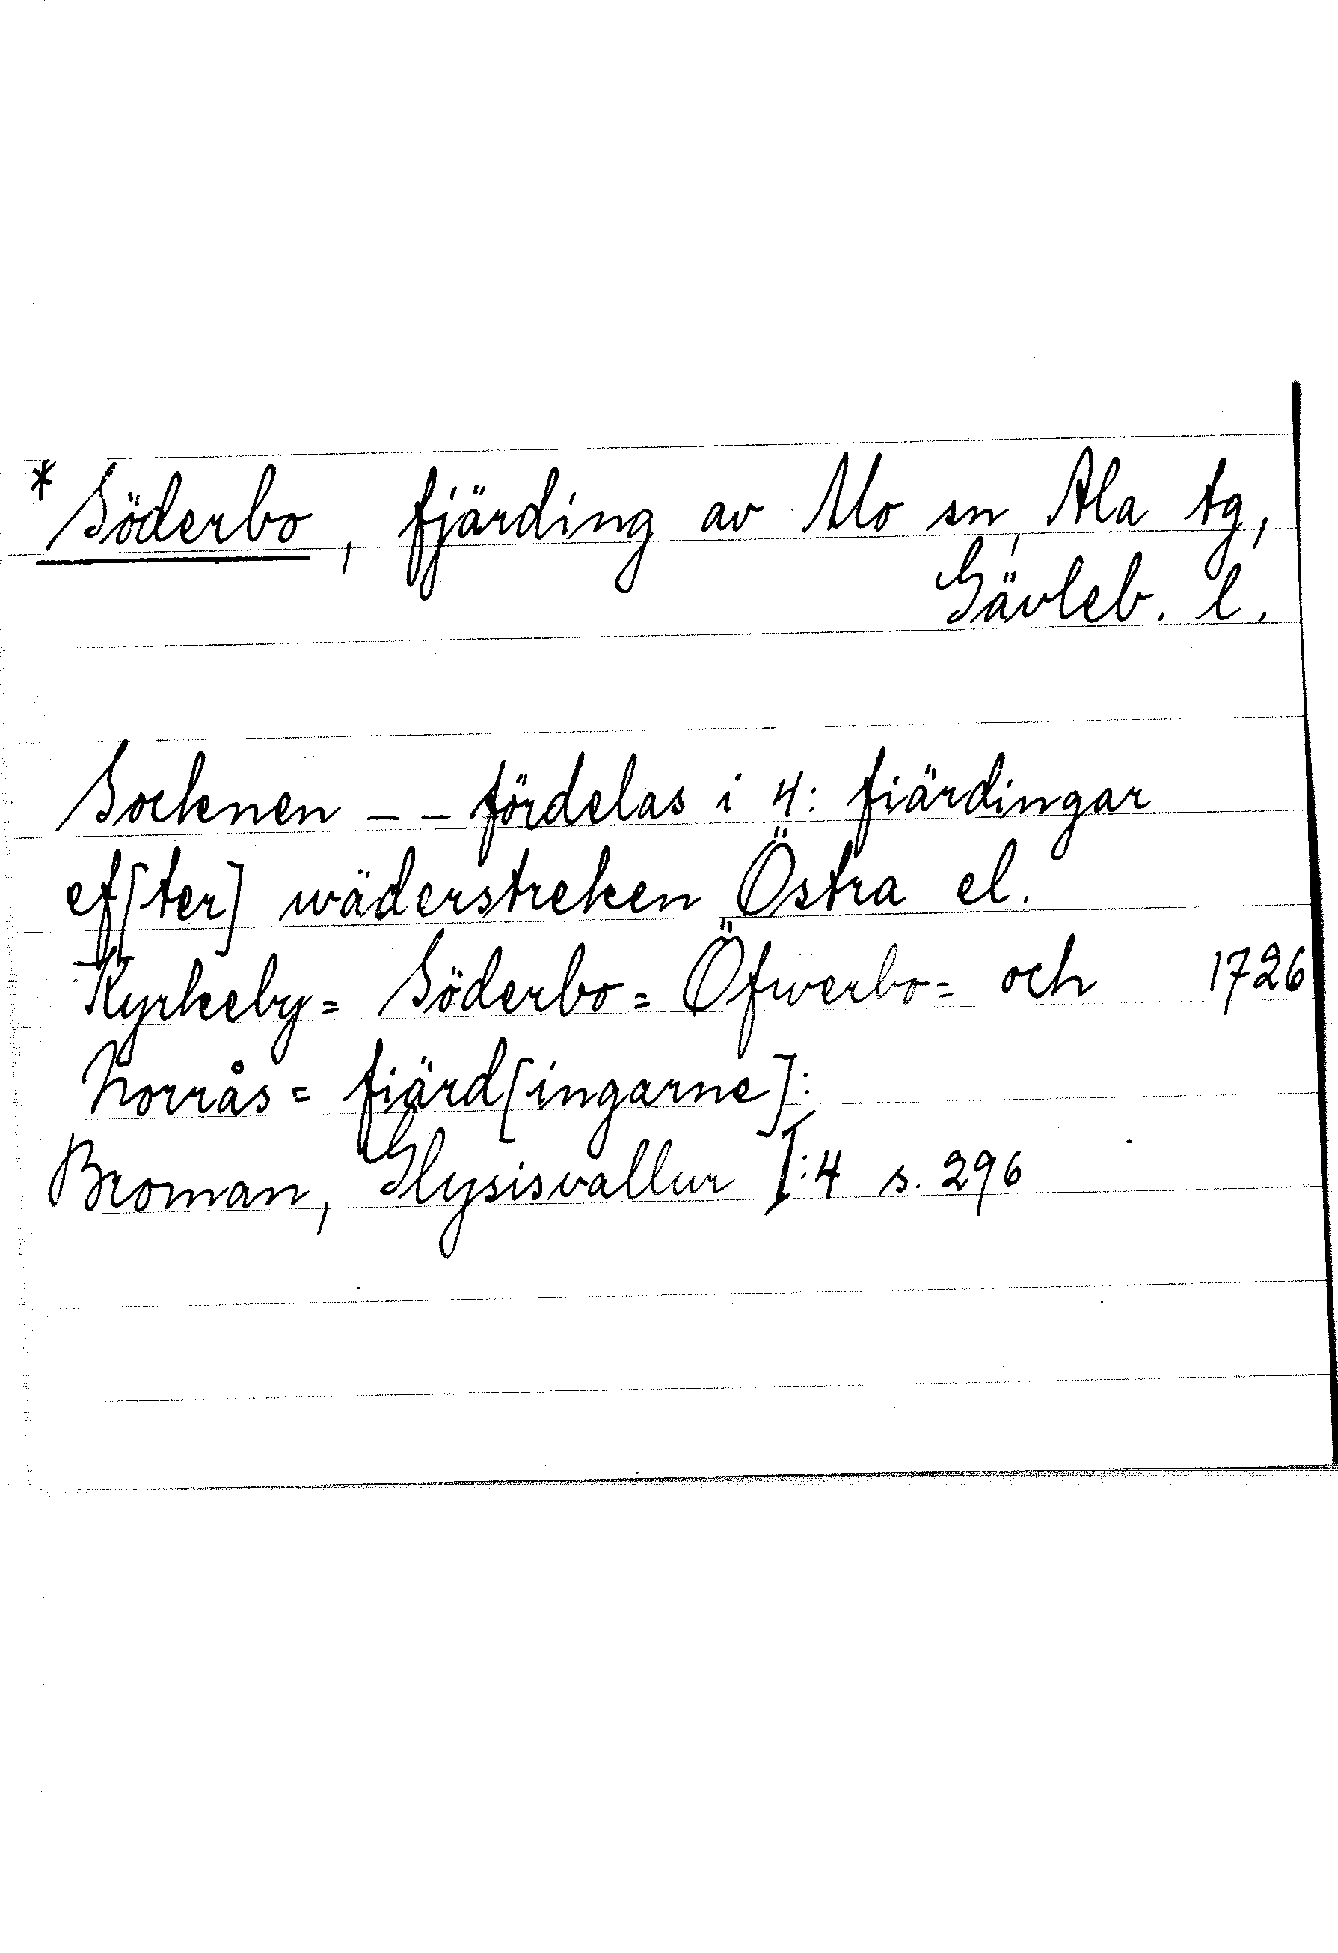 * Söderbo, fjärding av Mo sn, Ala tg,
Gävleb. l.
Socknen – – fördelas i 4: fiärdingar
ef[ter] wäderstreken Östra el.
Kyrkeby= Söderbo= Öfwerbo= och 1726
Norrås= fiärd[ingarne]:
Broman, Glysisvallur I:4 s. 296